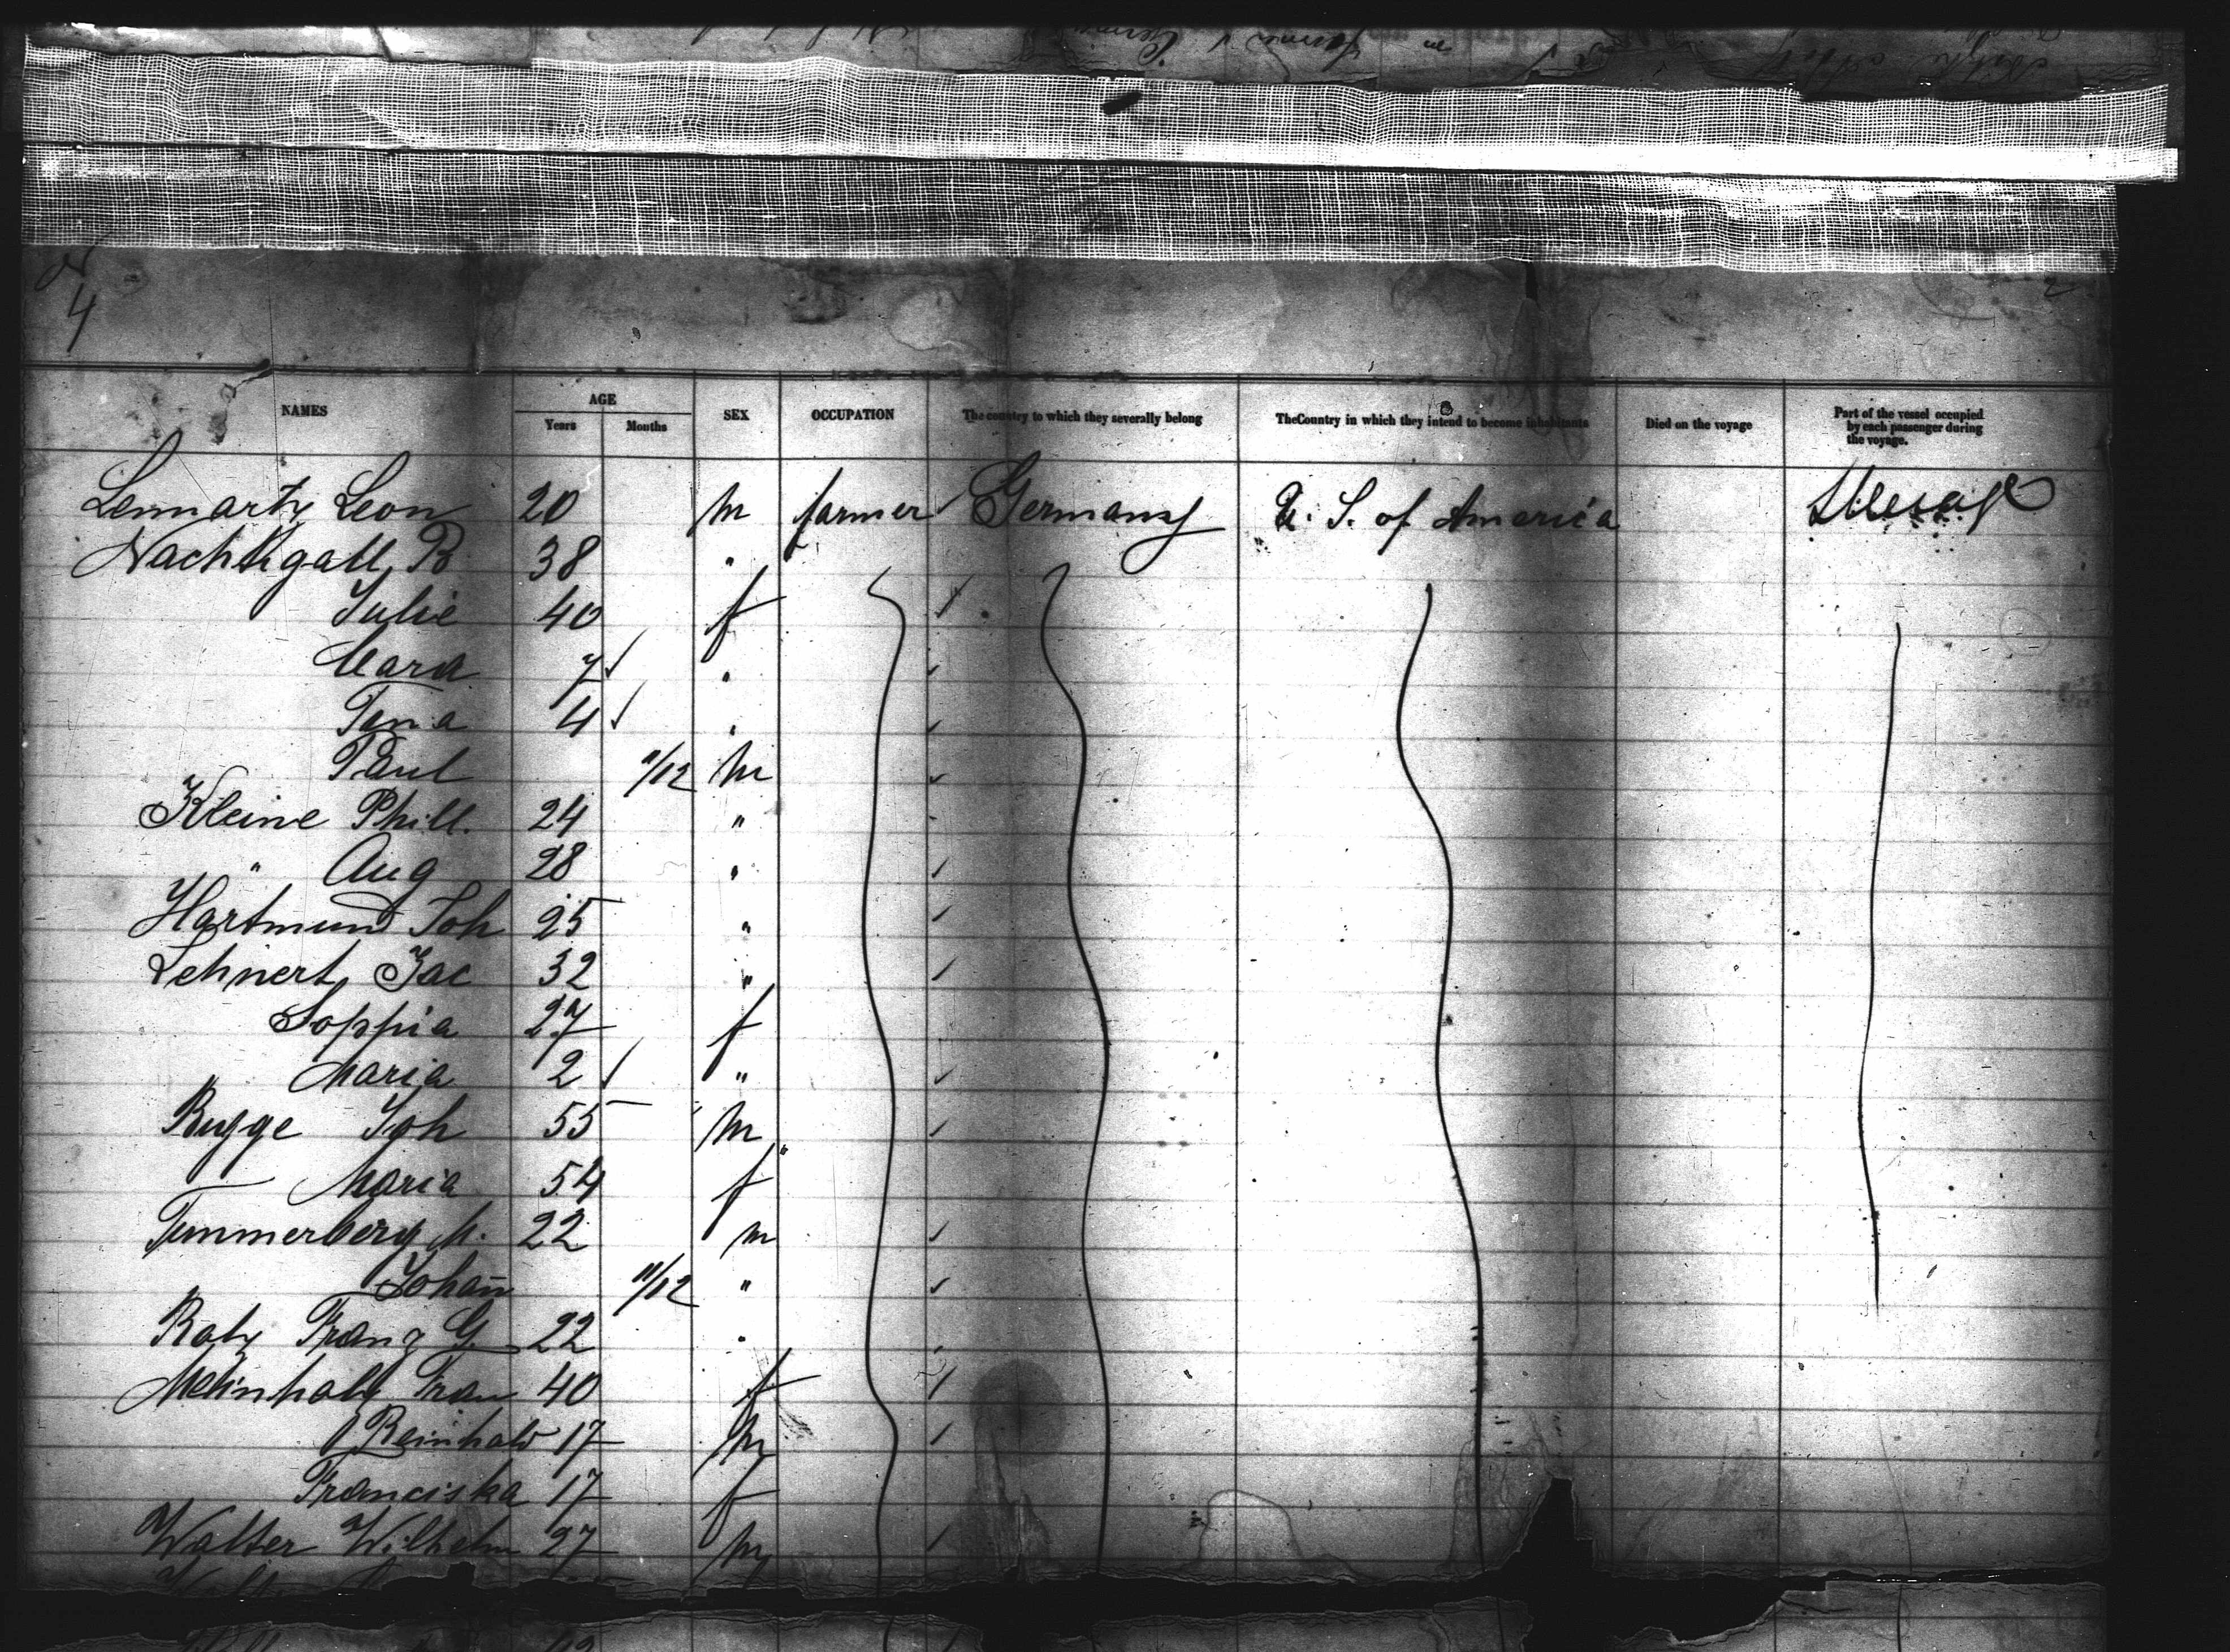 4
2
NAMES AGE SEX OCCUPATION The country to which they severally belong The Country in which they intend to become inhabitants Died on the voyage Part of the vessel occupied by each passenger during the voyage.
Years Months
Lennartz Leon 20 m farmer Germany U. S. of America
Nachtigall, B 38 "
Julie 40 f
Clara 7 "
4 "
Paul 11/12 m
Kleine Phill. 24 "
" Aug 28 "
Hartmund Joh 25 "
Lehnert, Jac 32 "
Sophia 27 f
Maria 2 "
Rugge Joh 55 m
Maria 54 f
Timmerberg M. 22 m
Johan̄ 11/12 "
Franz G. 22 "
40 f
Reinhold 17 m
Franciska 17 f
Walter Wilhelm 27 m